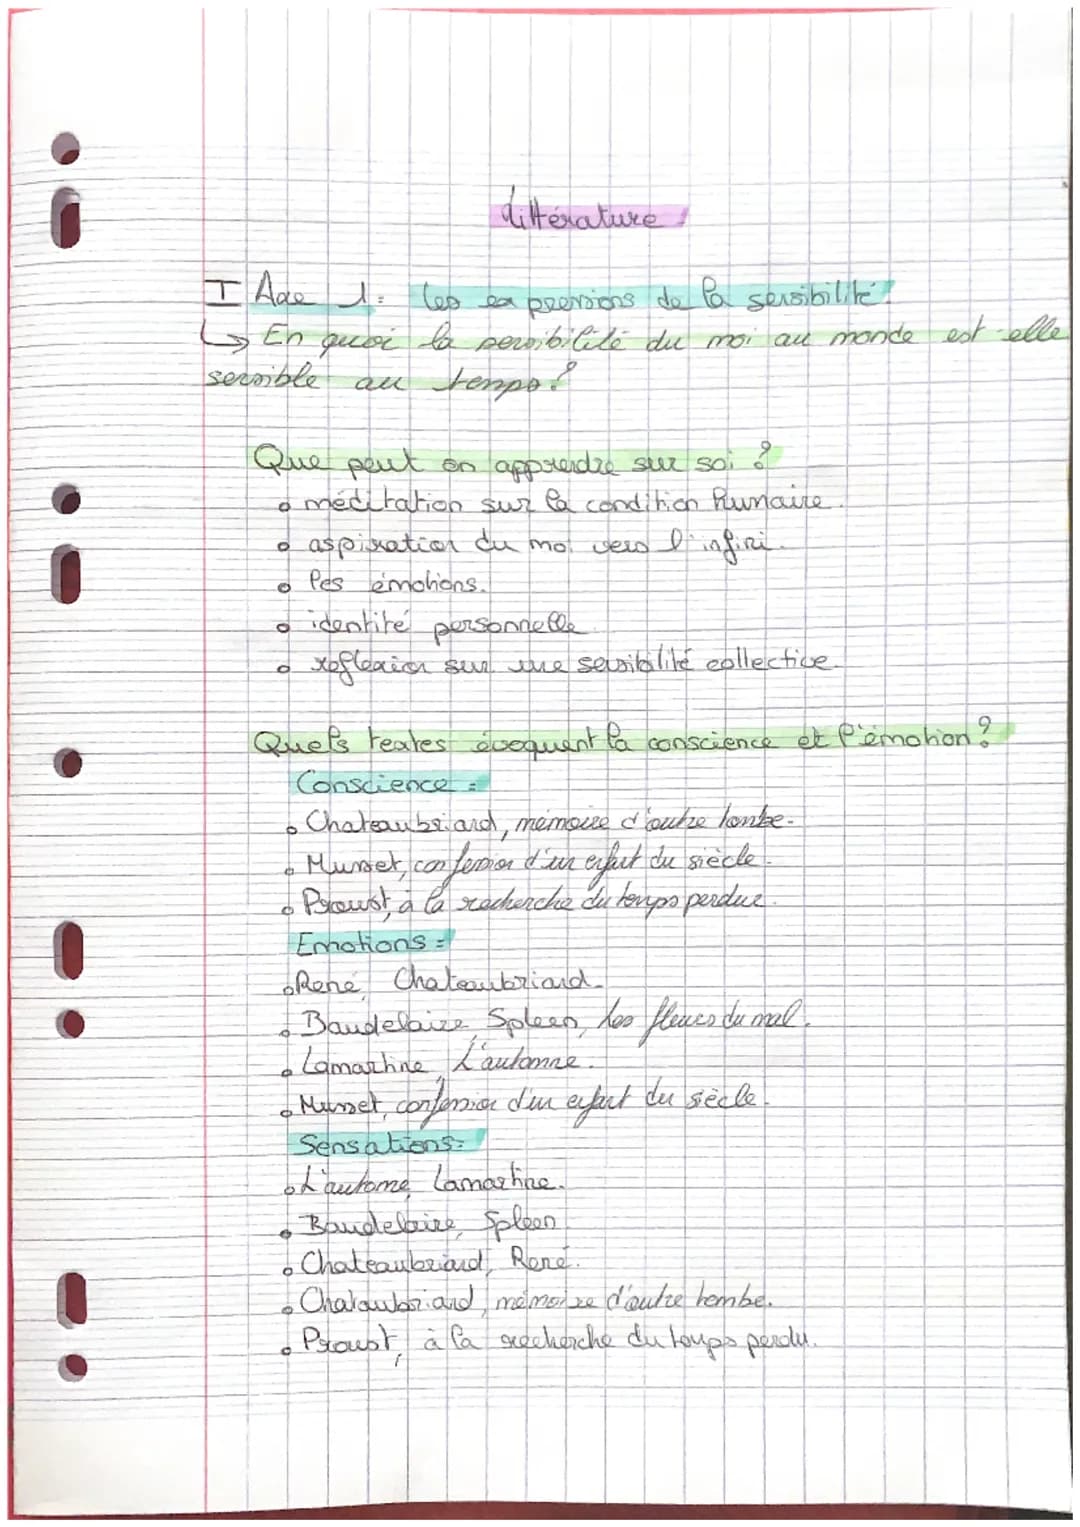 Littérature
I Axe 1: les expressions de la sensibilité.
↳ En quoi la sensibilité du moi au monde est-elle
sensible au temps?
Que peut on apprendre sur soi ?
• méditation sur la condition humaine.
• aspiration du moi vers l'infini.
• les émotions.
• identité personnelle
• reflexion sur une sensibilité collective.
Quels textes évoquent la conscience et l'émotion?
Conscience :
• Chateaubriand, mémoire d'outre tombe.
• Musset, confession d'un enfant du siècle.
• Proust, à la recherche du temps perdue.
Emotions :
• René, Chateaubriand.
• Baudelaire, Spleen, Les fleurs du mal.
• Lamartine, L'automne.
• Musset, confession d'un enfant du siècle.
Sensations:
• L'automne, Lamartine.
• Baudelaire, Spleen
• Chateaubriand, René.
• Chateaubriand, mémoire d'outre tombe.
• Proust, à la recherche du temps perdu.